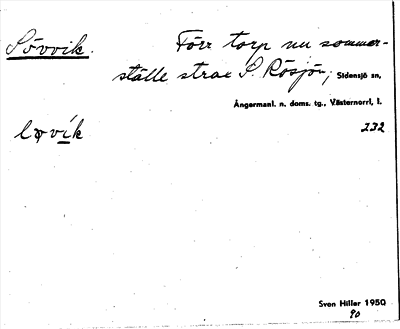 Lövvik. Förr torp nu sommar-
ställe strax S. Rösjön, Sidensjö sn,
Ångermanl. n. doms. tg., Västernorrl. l.
løvík 232
Sven Hiller 1950
90